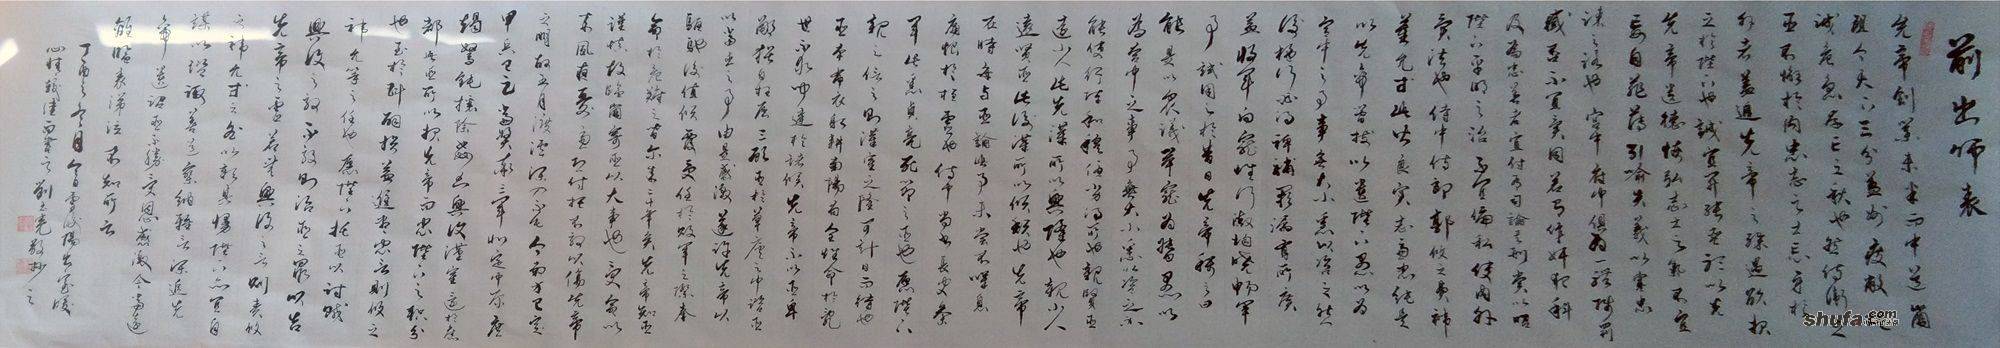 前出师表
先帝創業未半而中道崩
殂今天下三分益州疲敝此
誠危急存亡之秋也然侍衛之
臣不懈於内忠志之士忘身於
外者蓋追先帝之殊遇欲報
之於陛下也誠宜開張聖聽以光
先帝遺德恢弘志士之氣不宜
妄自菲薄引喻失義以塞忠
諫之路也宮中府中俱為一體陟罰
臧否不宜異同若有作奸犯科
及為忠善者宜付有司論其刑賞以昭
陛下平明之治不宜偏私使内外
異法也侍中侍郎郭攸之費禕
董允等此皆良實志慮忠純是
以先帝簡拔以遺陛下愚以為
宮中之事事無大小悉以咨之然
後施行必得裨補闕漏有所廣
益將軍向寵性行淑均曉暢軍
事試用之於昔日先帝稱之曰
能是以衆議舉寵為督愚以
為營中之事事無大小悉以咨之必
能使行陣和穆優劣得所也親賢臣
遠小人此先漢所以興隆也親小人
遠賢臣此後漢所以傾頹也先帝
在時每與臣論此事未嘗不嘆息
痛恨於桓靈也侍中尚書長史參
軍此悉貞亮死節之臣也願陛下
親之信之則漢室之隆可計日而待也
臣本布衣躬耕南陽苟全性命於亂
世不求聞達於諸侯先帝不以臣卑
鄙猥自枉屈三顧臣於草廬之中諮臣
以當世之事由是感激遂許先帝以
驅馳後值傾覆受任於敗軍之際奉
命於危難之間爾來二十年矣先帝知臣
謹慎故臨崩寄臣以大事也受命以
來夙夜憂慮恐付托不效以傷先帝
之明故五月渡瀘深入不毛今南方已定
甲兵已足當獎率三軍北定中原庶
竭駑鈍攘除奸凶興復漢室還於舊
都此臣所以報先帝而忠陛下之職分
也至於斟酌損益進盡忠言則攸之
禕允等之任也願陛下托臣以討賊
興復之效不效則治臣之罪以告
先帝之靈若無興復之言則責攸
之禕允等咎以彰其慢陛下亦宜自
謀以諮諏善道察納雅言深追先
帝遺詔臣不勝受恩感激今當遠
離臨表涕泣不知所云
丁酉之冬月
shufa.com